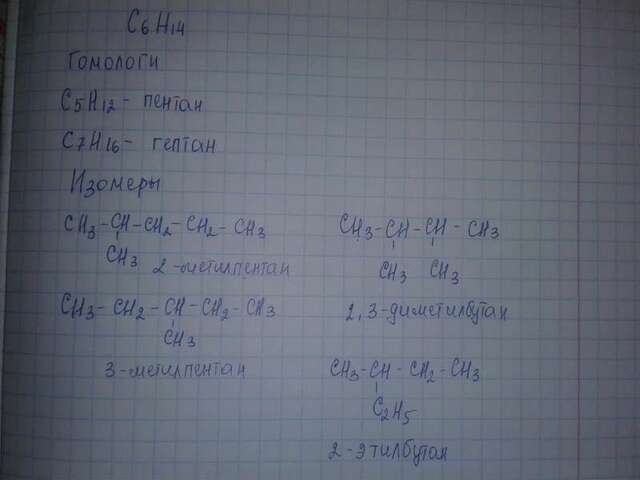 C6H14
Гомологи
C5H12- пентан
C7H16- гептан
Изомеры
CH3-CH-CH2-CH2-CH3
CH3
2-метилпентан
CH3-CH2-CH-CH2-CH3
CH3
3-метилпентан
CH3-CH-CH-CH3
CH3 CH3
2,3-диметилбутан
CH3-CH-CH2-CH3
C2H5
2-этилбутан